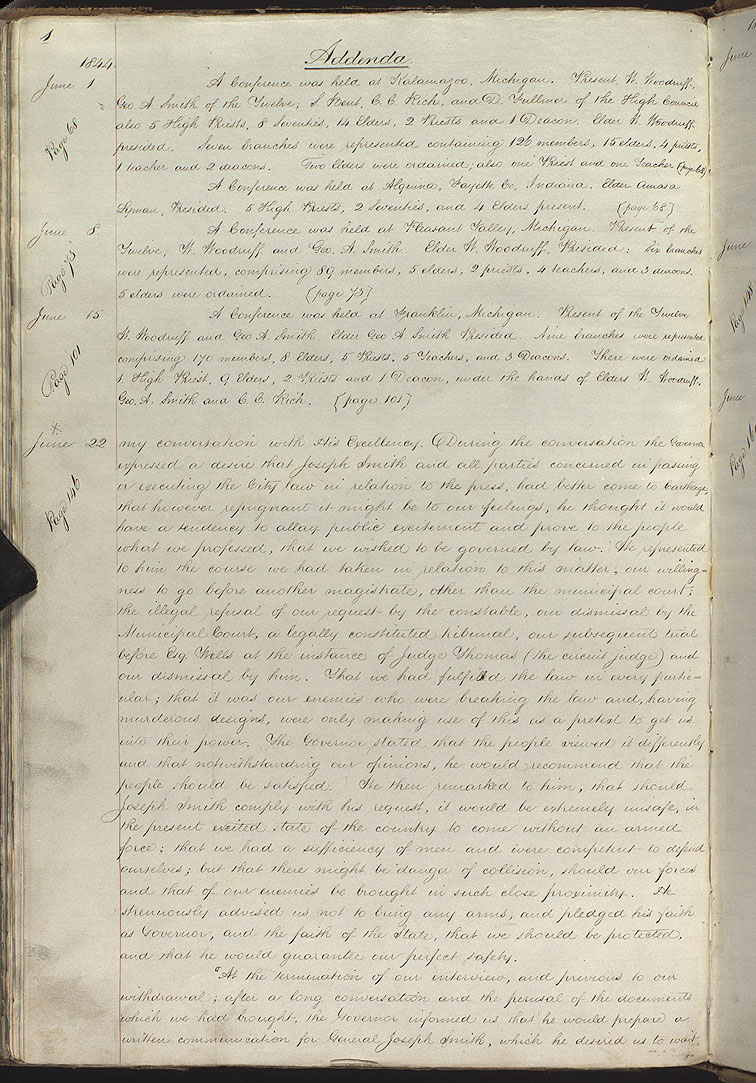 1
Addenda.
1844
June 1 A Conference was held at Kalamazoo, Michigan. Present W. Woodruff,
Geo A. Smith of the Twelve; S. Bent, C. C. Rich, and D. Fullmer of the High Council
also 5 High Priests, 8 Seventies, 14 Elders, 2 Priests and 1 Deacon. Elder W. Woodruff
Page 68
presided. Seven branches were represented containing 126 members, 15 elders, 4 priests,
1 teacher and 2 deacons. Two Elders were ordained; also one Priest and one Teacher (page 68)
A Conference was held at Alquina, Fayette Co, Indiana. Elder Amasa
Lyman, Presided. 5 High Priests, 2 Seventies, and 4 Elders present. [page 68]
June 8 A Conference was held at Pleasant Valley, Michigan. Present of the
Twelve, W. Woodruff and Geo. A. Smith Elder W. Woodruff, Presided; six branches
Page 75
were represented, comprising 89 members, 5 elders, 2 priests, 4 teachers, and 3 deacons.
5 elders were ordained. [page 75]
June 15 A Conference was held at Franklin, Michigan. Present of the Twelve
W. Woodruff and Geo A. Smith, Elder Geo A Smith Presided. Nine branches were represented
Page 101
comprising 170 members, 8 Elders, 5 Priests, 5 Teachers, and 3 Deacons. There were ordained
1 High Priest, 9 Elders, 2 Priests and 1 Deacon, under the hands of Elders W. Woodruff,
Geo. A. Smith and C. C. Rich. [page 101]
x
June 22 my conversation with His Excellency. During the conversation the Governor
expressed a desire that Joseph Smith and all parties concerned in passing
or executing the City law in relation to the press, had better come to Carthage;
Page 146
that however repugnant it might be to our feelings, he thought it would
have a tendency to allay public excitement and prove to the people
what we professed, that we wished to be governed by law. We represented
to him the course we had taken in relation to this matter; our willing-
ness to go before another magistrate, other than the municipal court;
the illegal refusal of our request by the constable, our dismissal by the
Municipal Court, a legally constituted tribunal, our subsequent trial
before Esq. Wells at the instance of Judge Thomas (the circuit judge) and
our dismissal by him. That we had fulfilled the law in every partic-
ular; that it was our enemies who were breaking the law and, having
murderous designs, were only making use of this as a pretext to get us
into their power. The Governor stated that the people viewed it differently
and that notwithstanding our opinions, he would recommend that the
people should be satisfied. We then remarked to him, that should
Joseph Smith comply with his request, it would be extremely unsafe, in
the present excited state of the country to come without an armed
force; that we had a sufficiency of men and were competent to defend
ourselves; but that there might be danger of collision, should our forces
and that of our enemies be brought in such close proximity. He
strenuously advised us not to bring any arms, and pledged his faith
as Governor, and the faith of the State, that we should be protected,
and that he would guarantee our perfect safety.
At the termination of our interview, and previous to our
withdrawal; after a long conversation and the perusal of the documents
which we had brought; the Governor informed us that he would prepare a
written communication for General Joseph Smith, which he desired us to wait
June
June
June